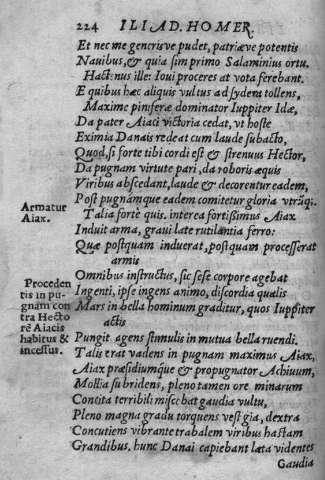 224 ILIAD. HOMER.
Et nec me generisve pudet, patriæve potentis
Navibus, & quia sim primo Salaminius ortu.
Hactenus ille: Ioui proceres at vota ferebant.
E quibus hæc aliquis vultus ad sydera tollens,
Maxime piniferæ dominator Iuppiter Idæ,
Da pater Aiaci victoria cedat, vt hoste
Eximia Danais redeat cum laude subacto,
Quod, si forte tibi cordi est & strenuus Hector,
Da pugnam virtute pari, da roboris æquis
Viribus abscedant, laude & decorentur eadem,
Post pugnamque eadem comitetur gloria vtrũqi.
Armatur
Aiax.
Talia fortè quis. interea fortißimus Aiax
Induit arma, graui late rutilantia ferro:
Quæ postquam induerat, postquam processerat
armis
Omnibus instructus, sic sese corpore agebat
Proceden
tis in pu-
gnam con
tra Hecto
rē Aiacis
habitus &
incessus.
Ingenti, ipse ingens animo, discordia qualis
Mars in bella hominum graditur, quos Iuppiter
actis
Pungit agens stimulis in mutua bella ruendi.
Talis erat vadens in pugnam maximus Aiax,
Aiax præsidiumque & propugnator Achiuum,
Mollia subridens, pleno tamen ore minarum
Concita terribili miscebat gaudia vultu,
Pleno magna gradu torquens vestigia, dextra
Concutiens vibrante trabalem viribus hastam
Grandibus, hunc Danai capiebant læta videntes
Gaudia